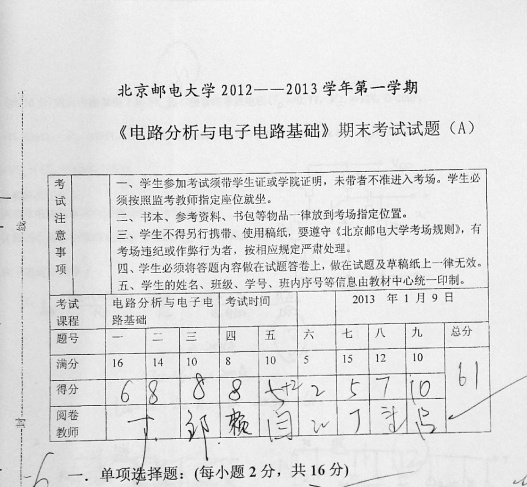 北京邮电大学 2012——2013 学年第一学期
《电路分析与电子电路基础》期末考试试题（A）
考试注意事项
一、学生参加考试须带学生证或学院证明，未带者不准进入考场。学生必
须按照监考教师指定座位就坐。
二、书本、参考资料、书包等物品一律放到考场指定位置。
三、学生不得另行携带、使用稿纸，要遵守《北京邮电大学考场规则》，有
考场违纪或作弊行为者，按相应规定严肃处理。
四、学生必须将答题内容做在试题答卷上，做在试题及草稿纸上一律无效。
五、学生的姓名、班级、学号、班内序号等信息由教材中心统一印制。
考试 电路分析与电子电 考试时间 2013 年 1 月 9 日
课程 路基础
题号 一 二 三 四 五 六 七 八 九 总分
满分 16 14 10 8 10 5 15 12 10
得分 6 8 8 8 5+2 2 5 7 10 61
阅卷
教师
一．单项选择题：(每小题 2 分，共 16 分)